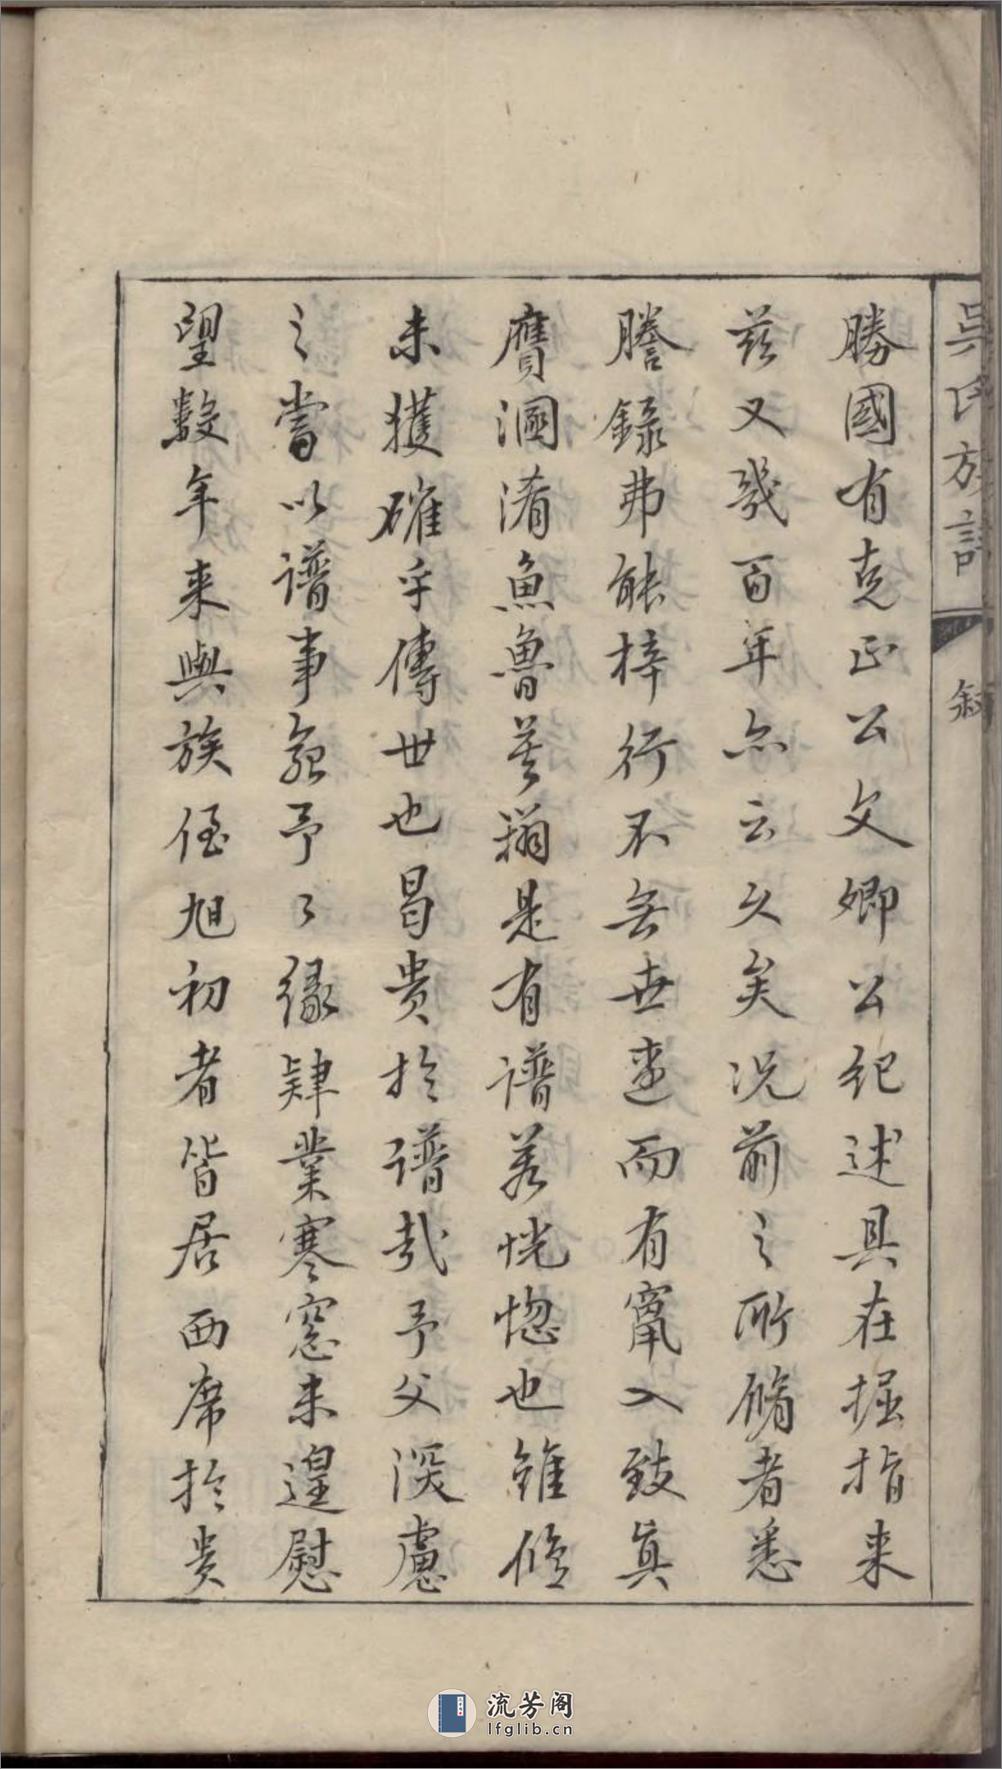 吳氏族譜 敘
勝國有克正公文卿公紀述具在掘指来
兹又幾百年亦云久矣况前之所脩者悉
謄錄弗能梓行不無世遠而有竄入致真
贋溷淆魚魯莫辨是有譜若恍惚也雖脩
未獲確乎傳世也曷贵扵譜哉予父深慮
之嘗以譜事命予〻緣肄業寒窓未遑慰
望數年来與族侄旭初者皆居西席扵贵
流芳阁
lfglib.cn